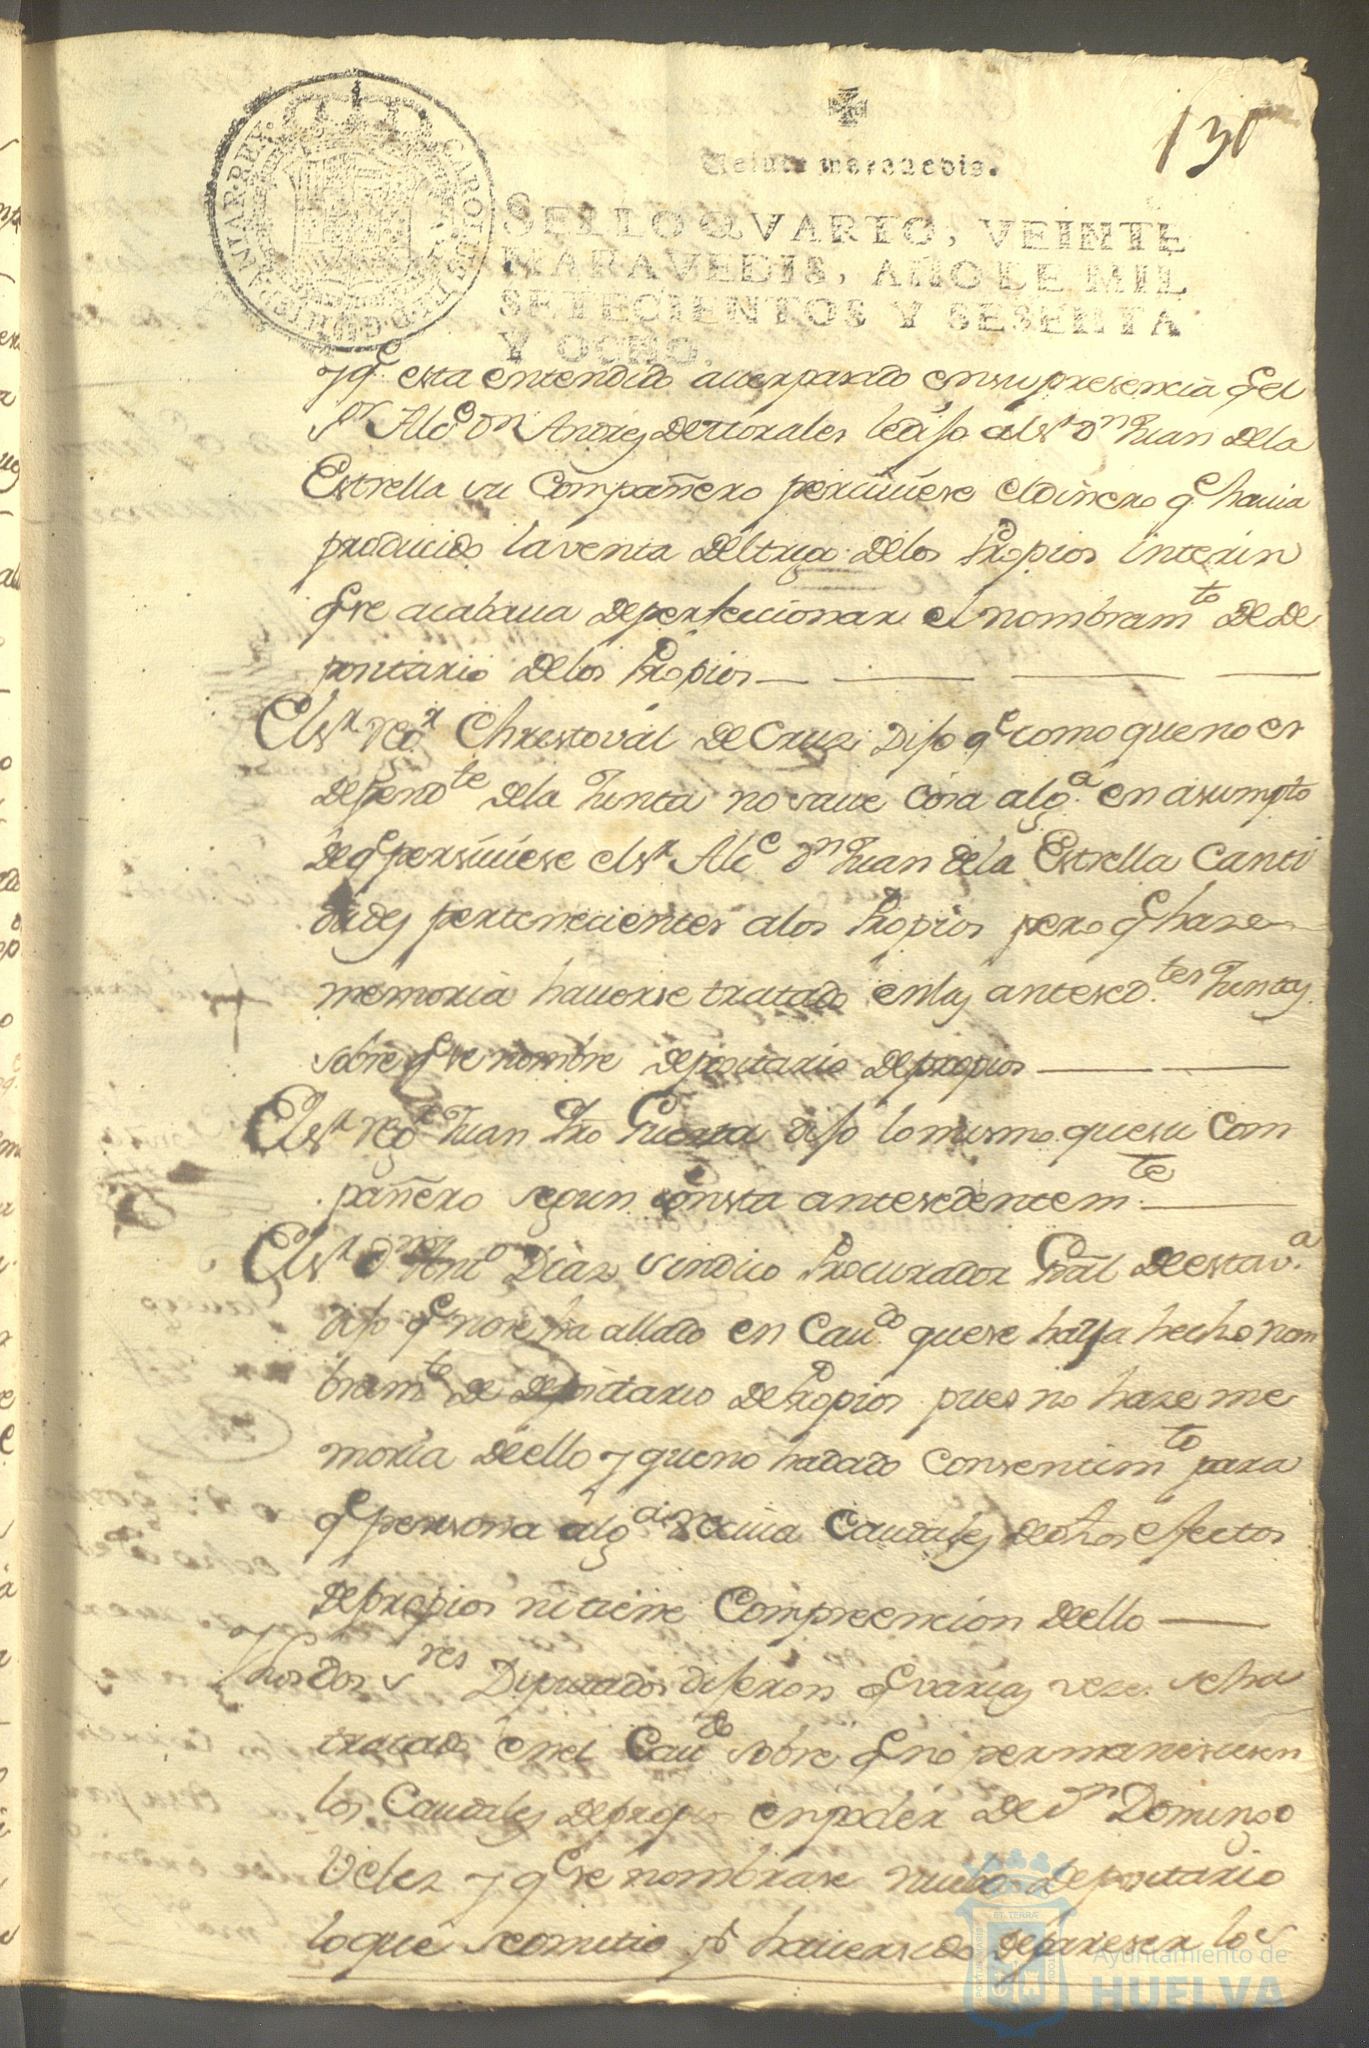 130
Veinte maravedis.
SELLO QVARTO, VEINTE
MARAVEDIS, AÑO DE MIL
SETECIENTOS Y SESENTA
Y OCHO.
y q.e esta entendido auer pasado en su presencia q.e el
s.or Alc.e D.n Andres de Morales le dijo al s.r D.n Juan de la
Estrella su Compañero perciuiese el dinero q.e hauia
producido la venta del trigo de los Propios interin
q.e se acabaua de perfeccionar el nombram.to de de
positario de los Propios
El s.r reg.r Christoval de Cruz, Dijo q.e como que no es
depend.te de la Junta no saue cosa alg.a en asumpto
de q.e persiuiese el s.r Alc.e D.n Juan de la Estrella Canti
dades pertenecientes a los Propios pero q.e haze
memoria hauerse tratado en las antesed.tes Juntas
sobre q.e se nombre depositario de propios
El s.r reg.r Juan Pro Guerra dijo lo mismo que su com
pañero segun consta antesedentem.te
El s.r D.n Ant.o Diaz sindico Procurador Gral de esta v.a
dijo q.e no se ha allado en Cau.do que se haya hecho nom
bram.to de depositario de Propios pues no haze me
moria de ello y que no ha dado consentim.to para
q.e persona alg.a reciua Caudales de dhos efectos
de propios ni tiene Comprecencion de ello
Y los dos s.res Diputados dijeron q.e varias vezes se ha
tratado en el Cau.do sobre q.e no permaneciesen
los Caudales de propios en poder de D.n Domingo
Velez y q.e se nombrase nuebo depositario
lo que se omitio p.r hauer sido de pareser los
ET TERRÆ
Ayuntamiento de
HUELVA